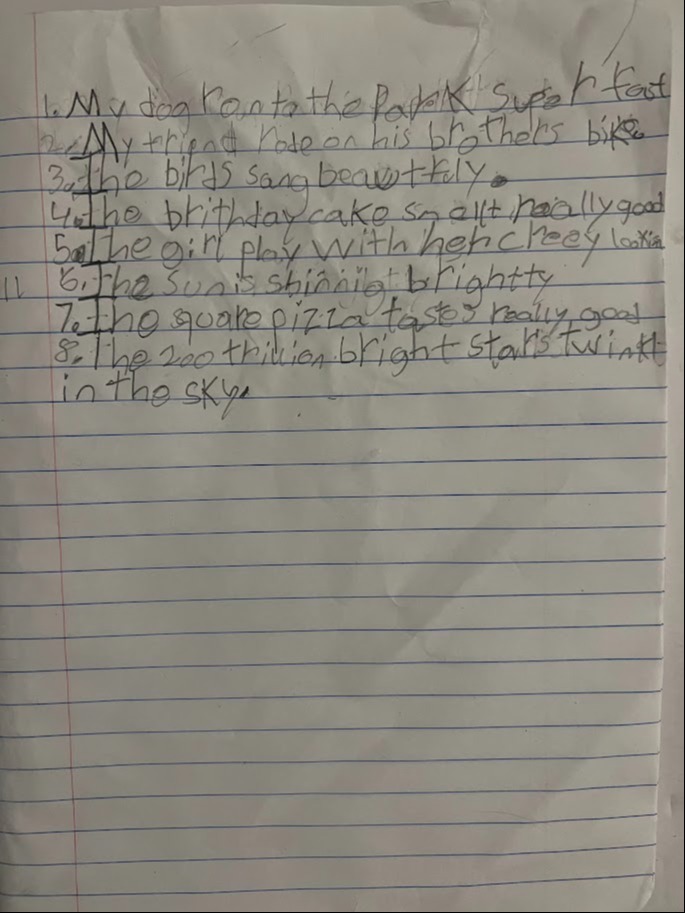 1. My dog ran to the Park super fast
2. My friend rode on his brothers bike.
3. The birds sang beawtfly.
4. The brithday cake smallt really good
5. The girl play with her creey lookin
6. The Sun is shinnig brightty
7. The square pizza tastes really good
8. The 200 trillion bright stars twinkl
in the sky.